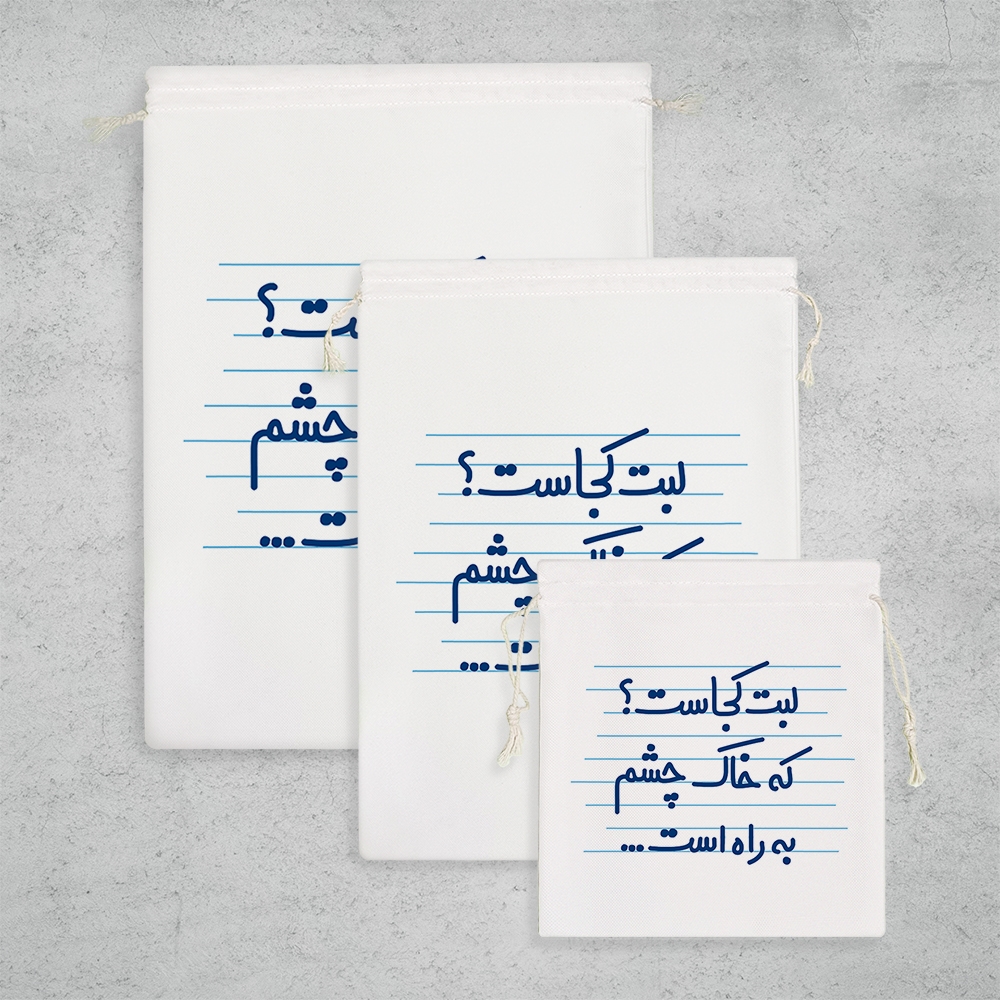 ست؟
چشم
ت...
لبت کجاست؟
که خاک چشم
ت...
لبت کجاست؟
که خاک چشم
به راه است...